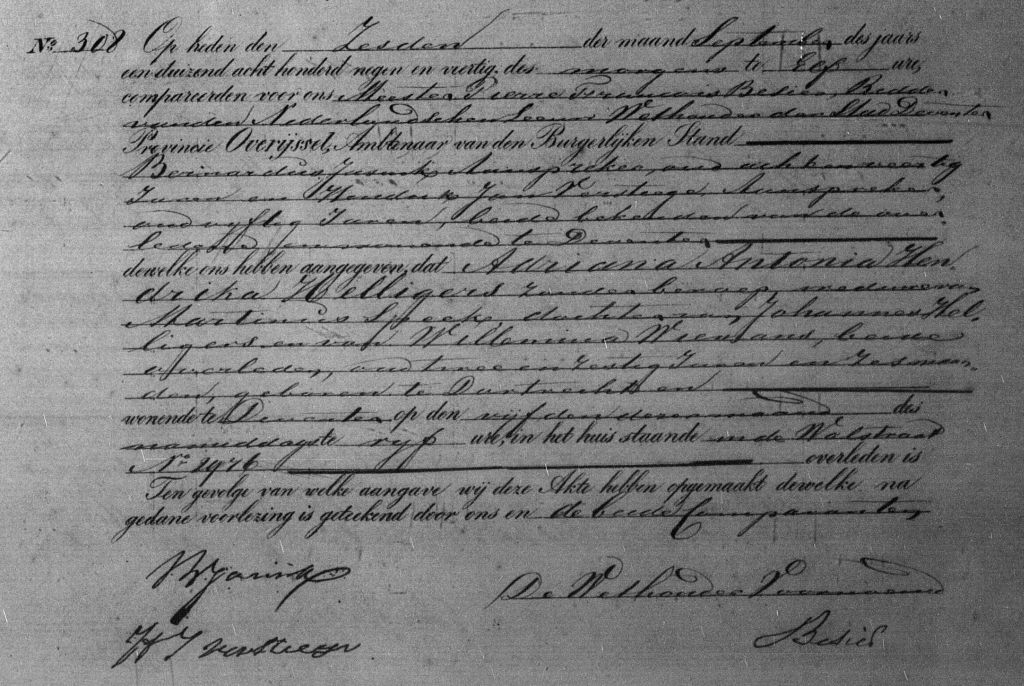 No. 308 Op heden den Zesden der maand September des jaars
een duizend acht honderd negen en viertig, des morgens te Elf ure,
compareerden voor ons Meester Pierre Francois Besier, Ridder
van den Nederlandschen Leeuw Wethouder der Stad Deventer
Provincie Overijssel, Ambtenaar van den Burgerlijken Stand
Bernardus Jasink, Aanspreker, oud acht en veertig
Jaren en Hendrik Jan Versteege, Aanspreker,
oud vyftig Jaren, beide bekenden van de over-
ledene, wonende te Deventer
dewelke ons hebben aangegeven, dat Adriana Antonia Hen-
drika Helligers zonder beroep, weduwe van
Martinus dochter van Johannes Hel-
ligers, en van Willemina Wiemans, beide
overleden, oud twee en zestig Jaren en zes maan-
den, geboren te Dortrecht en
wonende te Deventer op den vijfden dezer maand des
namiddags te vyf ure, in het huis staande in de Walstraat
No. 1976 overleden is
Ten gevolge van welke aangave wij deze Akte hebben opgemaakt dewelke na
gedane voorlezing is geteekend door ons en de beide Comparanten
B Jasink
De Wethouder Voornoemd
HJ Versteege
Besier